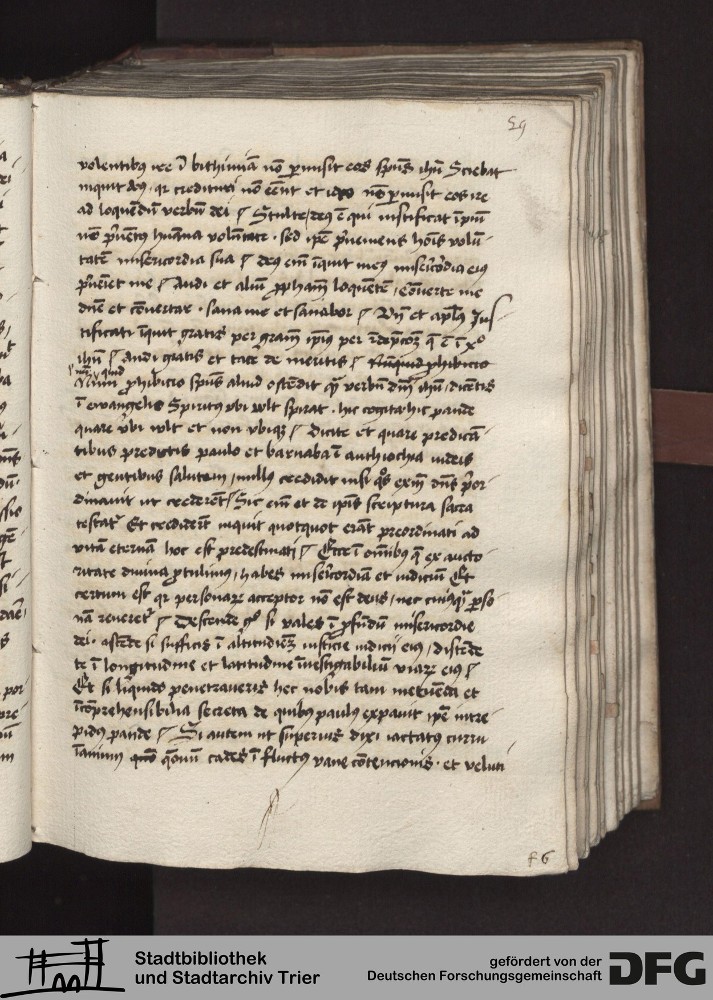 59
volentibus ire ī bithiniā nō ꝑmisit eos spūs ihū Sciebat
inquit deus qr credituri nō eēnt et ideo nō ꝑmisit eos ire
ad loquendū verbū dei / Stulte deus ē qui iustificat īpiū
nō p̄uētꝰ humana volūtate · sed ipē p̄ueniens hoīs volū
tatē misericordia sua / deus eni īquit meus misericordia eiꝰ
p̄ueniet me / Audi et aliū ꝓpham loquentē / cōuerte me
dn̄e et cōuertar · sana me et sanabor / et apl̄s Jus
tificati īquit gratis per gram ipiꝰ per q ē ī xº
ihū / Audi gratis et tace de meritis /
ꝓhibicio spūs aliud ostēdit verbū ihū / dicētis
ī ewangelio Spiritꝰ vbi wlt spirat · hic cogita hic pande
quare vbi wlt et non vbiqꝫ / Dicite et quare predicā
tibus predictis paulo et barnaba ī anthiochia iudeis
et gentibus salutem / nullꝰ credidit nisi qͦs exiⁿ dn̄s p̄or
dinauit ut crederēt / Sic eni et de ipīs scriptura sacra
testatʳ Et credider̄t inquit quotquot erāt preordinati ad
vitā eternā hoc est predestinati / Ecce ī omībus q̄ ex aucto
ritate diuina ꝓtulimus / habes misericordiā et iudiciū Et
certum est qr personaꝝ acceptor nō est deus / nec cuiusqͣ ꝑso
nā reueretʳ / Descende gͦ si vales ī ꝓfūdū misericordie
dei · ascēde si sufficis ī altitudiēꝫ iusticie iudicii eiꝰ / distēde
te ī longitudine et latitudine īuestigabiliū viaꝝ eiꝰ /
Et si liquido penetraueris hec nobis tam metuēda et
īcōprehensibilia secreta de quibꝰ paulꝰ expauit ipē intre
pidꝰ pande / Si autem ut superius dixi iactatꝰ curru
cades ī fluctꝰ vane cōtencionis · et veluti
f 6
Stadtbibliothek
und Stadtarchiv Trier
gefördert von der
Deutschen Forschungsgemeinschaft
DFG